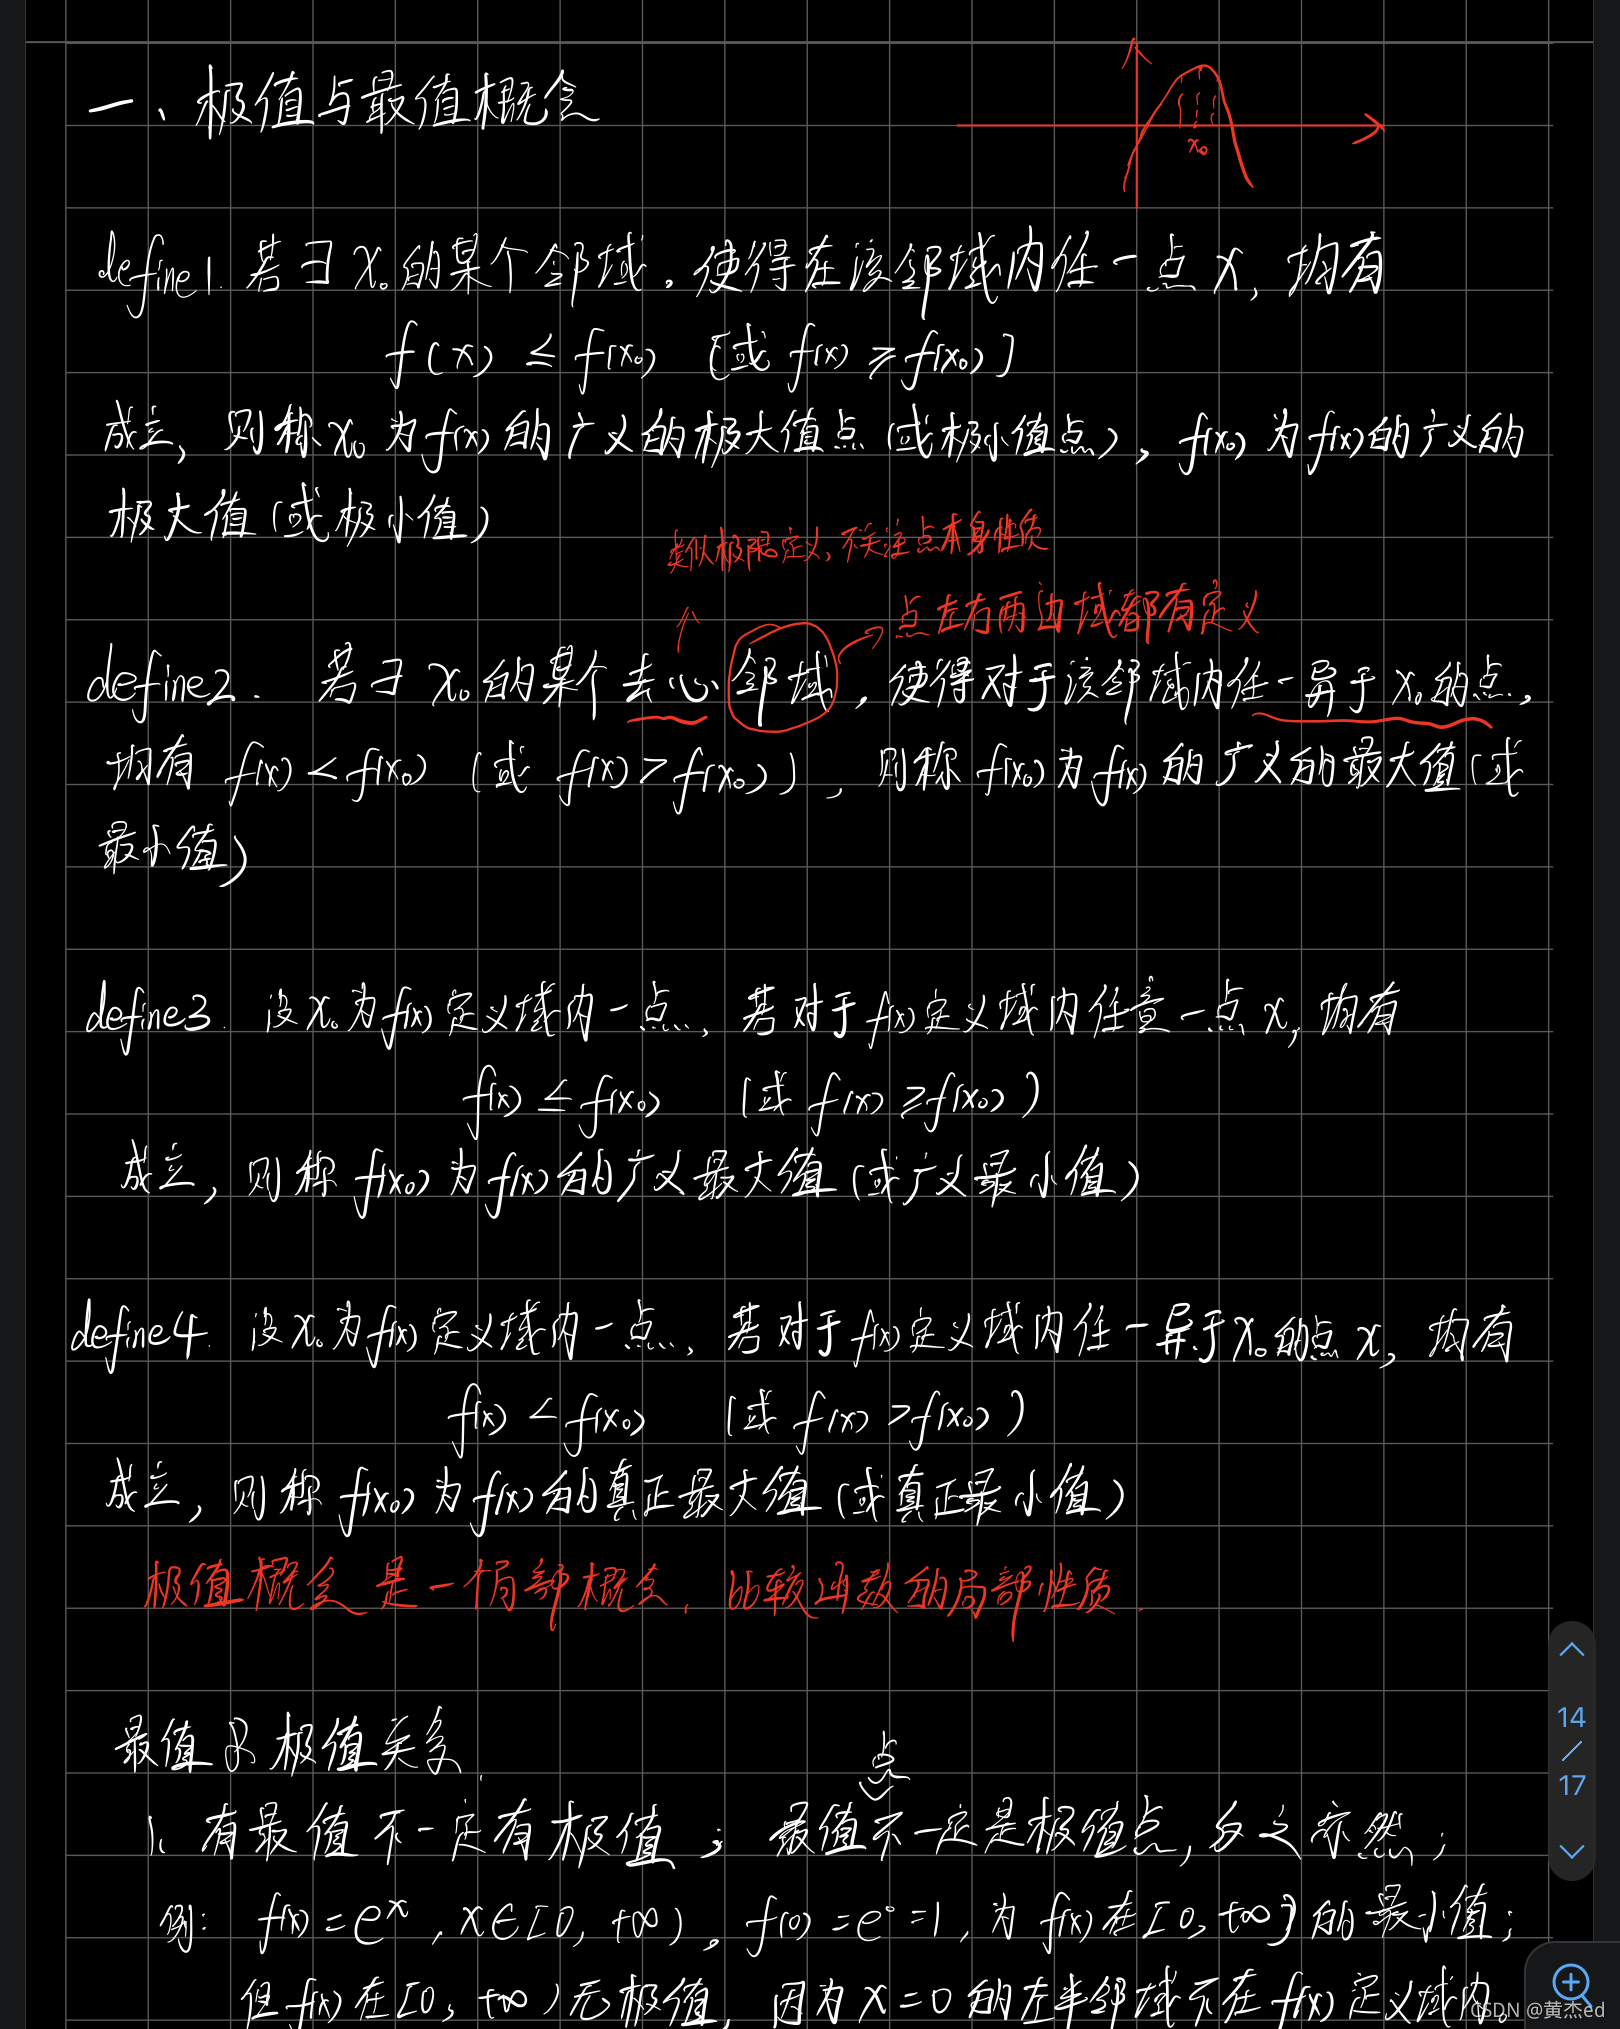 一、极值与最值概念
x₀
define1. 若∃ x₀的某个邻域，使得在该邻域内任一点x，均有
f(x) ≤ f(x₀) [或 f(x) ≥ f(x₀)]
成立，则称x₀为f(x)的广义的极大值点(或极小值点)，f(x₀)为f(x)的广义的
极大值(或极小值)
类似极限定义，不关注点本身性质
点左右两边域都有定义
define2. 若∃ x₀的某个去心邻域，使得对于该邻域内任一异于x₀的点，
均有 f(x) < f(x₀) (或 f(x) > f(x₀))，则称f(x₀)为f(x)的广义的最大值(或
最小值)
define3. 设x₀为f(x)定义域内一点，若对于f(x)定义域内任意一点x，均有
f(x) ≤ f(x₀) (或 f(x) ≥ f(x₀))
成立，则称f(x₀)为f(x)的广义最大值(或广义最小值)
define4. 设x₀为f(x)定义域内一点，若对于f(x)定义域内任一异于x₀的点x，均有
f(x) < f(x₀) (或 f(x) > f(x₀))
成立，则称f(x₀)为f(x)的真正最大值(或真正最小值)
极值概念是一个局部概念，比较函数的局部性质.
最值及极值关系.
点
1、有最值不一定有极值；最值不一定是极值点，反之亦然；
例：f(x)=eˣ，x∈[0，+∞)。f(0)=e⁰=1，为f(x)在[0，+∞)的最小值；
但f(x)在[0，+∞)无极值，因为x=0的左半邻域不在f(x)定义域内。
14
/
17
CSDN @黄杰ed